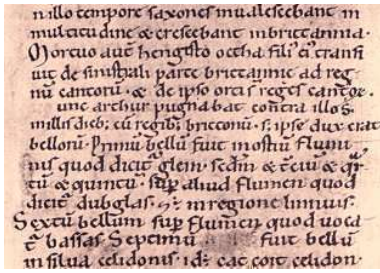 n illo tempore saxones inualescebant in
multitudine & crescebant in brittannia.
Mortuo aut̄ hengisto octha fili᷒ ei᷒ transi
uit de sinistrali parte brittannie ad reg
nū cantorū. & de ipso orti s̄ reges cantor̄.
unc arthur pugnabat contra illos.
in illis dieb; cū regib; brittonū. s; ipse dux erat
bellorū. Primū bellū fuit in ostiū flumi
nis quod dicit᷑ glein. sedm̄ & t̄ciū & q̄r
tū & quintū. sup̄ aliud flumen quod
dicit᷑ dubglas. & ē in regione linnuis.
Sextū bellum sup̄ flumen quod uoca
t᷑ bassas. Septimū fuit bellū
in silua celidonis. id ē cat coit celidon.